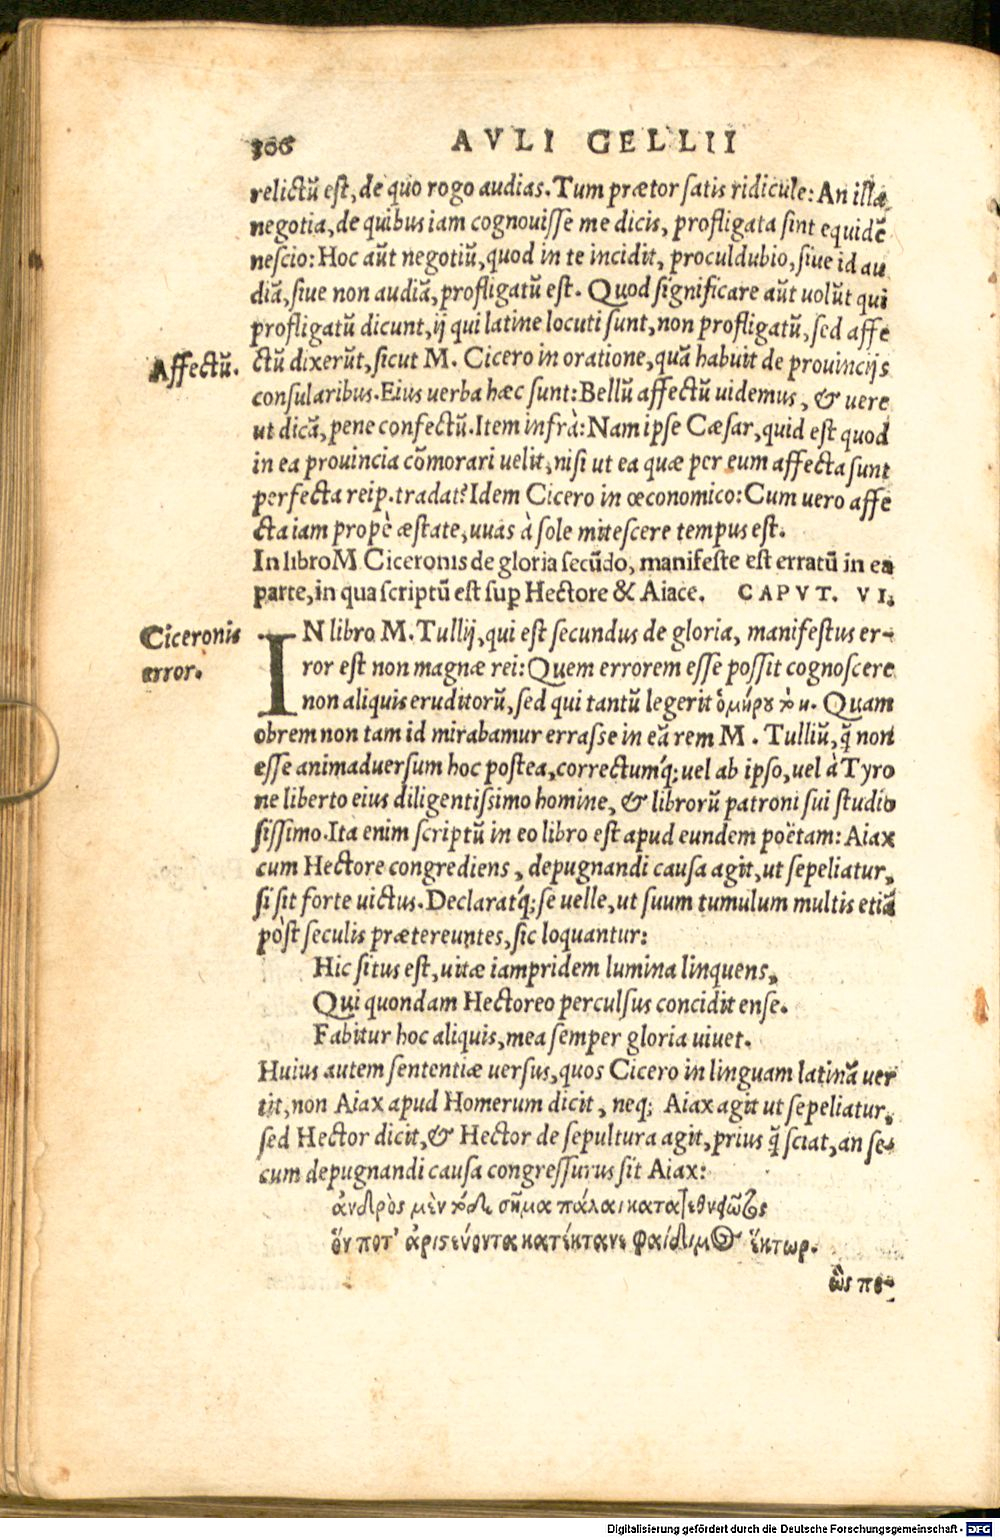 306 AVLI GELLII
relictũ est, de quo rogo audias. Tum prætor satis ridicule: An illa
negotia, de quibus iam cognouisse me dicis, profligata sint equidẽ
nescio: Hoc aũt negotiũ, quod in te incidit, proculdubio, siue id au
diã, siue non audiã, profligatũ est. Quod significare aũt uolũt qui
profligatũ dicunt, ij qui latine locuti sunt, non profligatũ, sed affe
Affectũ.
ctũ dixerũt, sicut M. Cicero in oratione, quã habuit de prouincijs
consularibus. Eius uerba hæc sunt: Bellũ affectũ uidemus, & uere
ut dicã, pene confectũ. Item infrà: Nam ipse Cæsar, quid est quod
in ea prouincia cõmorari uelit, nisi ut ea quæ per eum affecta sunt
perfecta reip. tradat? Idem Cicero in œconomico: Cum uero affe
cta iam propè æstate, uuas à sole mitescere tempus est.
In libro M Ciceronis de gloria secũdo, manifeste est erratũ in ea
parte, in qua scriptũ est suꝑ Hectore & Aiace. CAPVT. VI.
Ciceronis
error.
IN libro M. Tullij, qui est secundus de gloria, manifestus er-
ror est non magnæ rei: Quem errorem esse possit cognoscere
non aliquis eruditorũ, sed qui tantũ legerit ὁμήρου ἢ η. Quam
obrem non tam id mirabamur errasse in eã rem M. Tulliũ, q̃ non
esse animaduersum hoc postea, correctumq́; uel ab ipso, uel à Tyro
ne liberto eius diligentissimo homine, & librorũ patroni sui studio
sissimo. Ita enim scriptũ in eo libro est apud eundem poëtam: Aiax
cum Hectore congrediens, depugnandi causa agit, ut sepeliatur,
si sit forte uictus. Declaratq́; se uelle, ut suum tumulum multis etiã
pòst seculis prætereuntes, sic loquantur:
Hic situs est, uitæ iampridem lumina linquens,
Qui quondam Hectoreo perculsus concidit ense.
Fabitur hoc aliquis, mea semper gloria uiuet.
Huius autem sententiæ uersus, quos Cicero in linguam latinã uer
tit, non Aiax apud Homerum dicit, neq; Aiax agit ut sepeliatur,
sed Hector dicit, & Hector de sepultura agit, prius q̃ sciat, an se-
cum depugnandi causa congressurus sit Aiax:
ἀνδρὸς μὲν τόδε σῆμα πάλαι κατατεθνηῶτος
ὅν ποτ' ἀριστεύοντα κατέκτανε φαίδιμος ἕκτωρ.
ὥς πο-
Digitalisierung gefördert durch die Deutsche Forschungsgemeinschaft - DFG